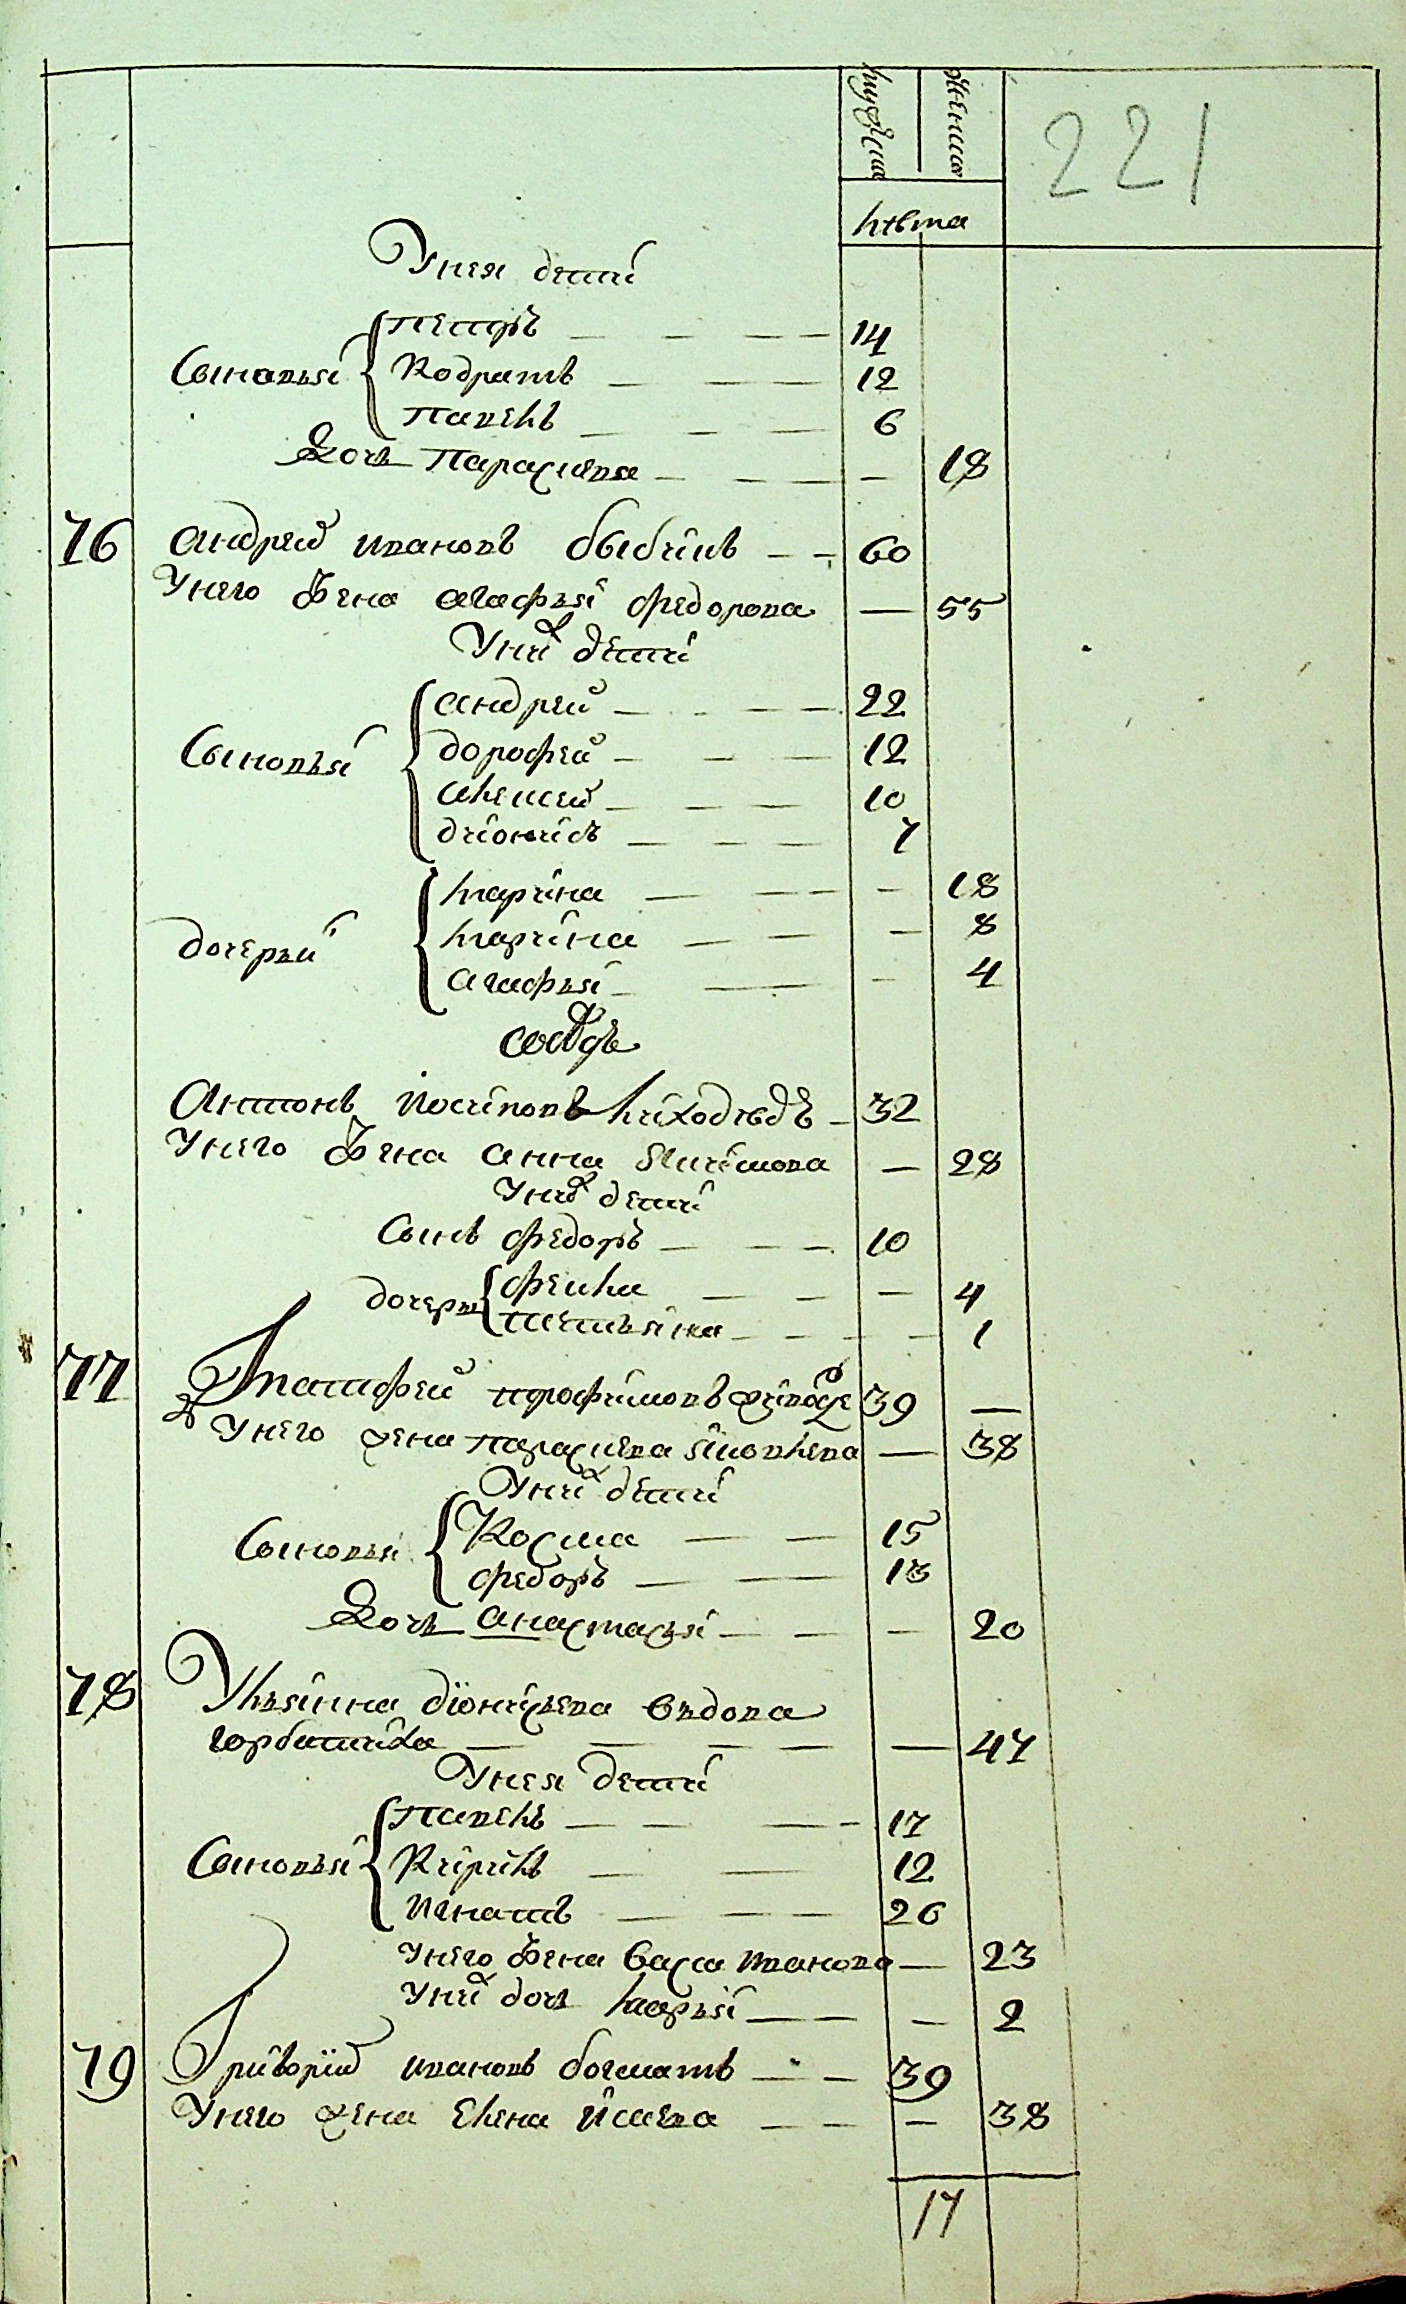 мужеска женска
221
лѣта
У нея дети
Сыновья
Петръ 14
Кодратъ 12
Павелъ 6
Дочь Параскева — 18
76 Андрей Ивановъ Быбикъ 60
У него жена Агафья Федорова — 55
У них дети
Сыновья
Андрей 22
Дорофей 12
Алексей 10
Дионисъ 7
Дочерьи
Марина — 18
Марина — 8
Агафья — 4
сосѣдъ
Антонъ Иосиповъ Лиходѣдъ 32
У него жена Анна — 28
У них дети
Сынъ Федоръ 10
дочеры
Фекла — 4
Татьяна — 1
77 Матфей Трофимовъ 39 —
У него жена Параскева Яковлева — 38
У них дети
Сыновья
Косма 15
Федоръ 13
Дочь Анастасья — 20
78 Ульянна Діонисьева вдова
горбатиха — 47
У нея дети
Сыновья
Павелъ 17
Кирилъ 12
Игнатъ 26
У него жена Васса Иванова — 23
У них дочь Марья — 2
79 Григорій Ивановъ Богматъ 39
У него жена Елена Исаева — 38
17